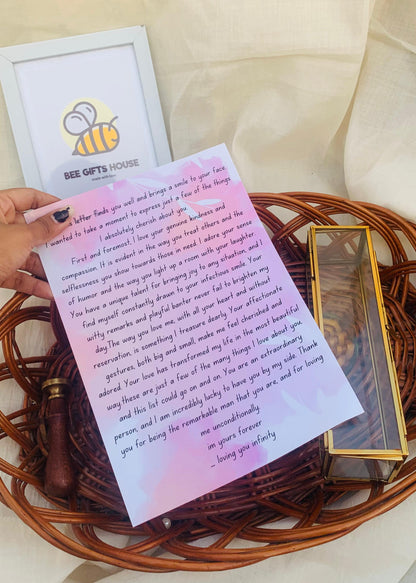 BEE GIFTS HOUSE
letter finds you well and brings a smile to your face.
I wanted to take a moment to express just a few of the things
I absolutely cherish about you.
First and foremost, I love your genuine kindness and
compassion. It is evident in the way you treat others and the
selflessness you show towards those in need. I adore your sense
of humor and the way you light up a room with your laughter.
You have a unique talent for bringing joy to any situation, and I
find myself constantly drawn to your infectious smile. Your
witty remarks and playful banter never fail to brighten my
day.The way you love me, with all your heart and without
reservation, is something I treasure dearly. Your affectionate
gestures, both big and small, make me feel cherished and
adored. Your love has transformed my life in the most beautiful
way.these are just a few of the many things I love about you,
and this list could go on and on. You are an extraordinary
person, and I am incredibly lucky to have you by my side. Thank
you for being the remarkable man that you are, and for loving
me unconditionally.
im yours forever
_ loving you infinity